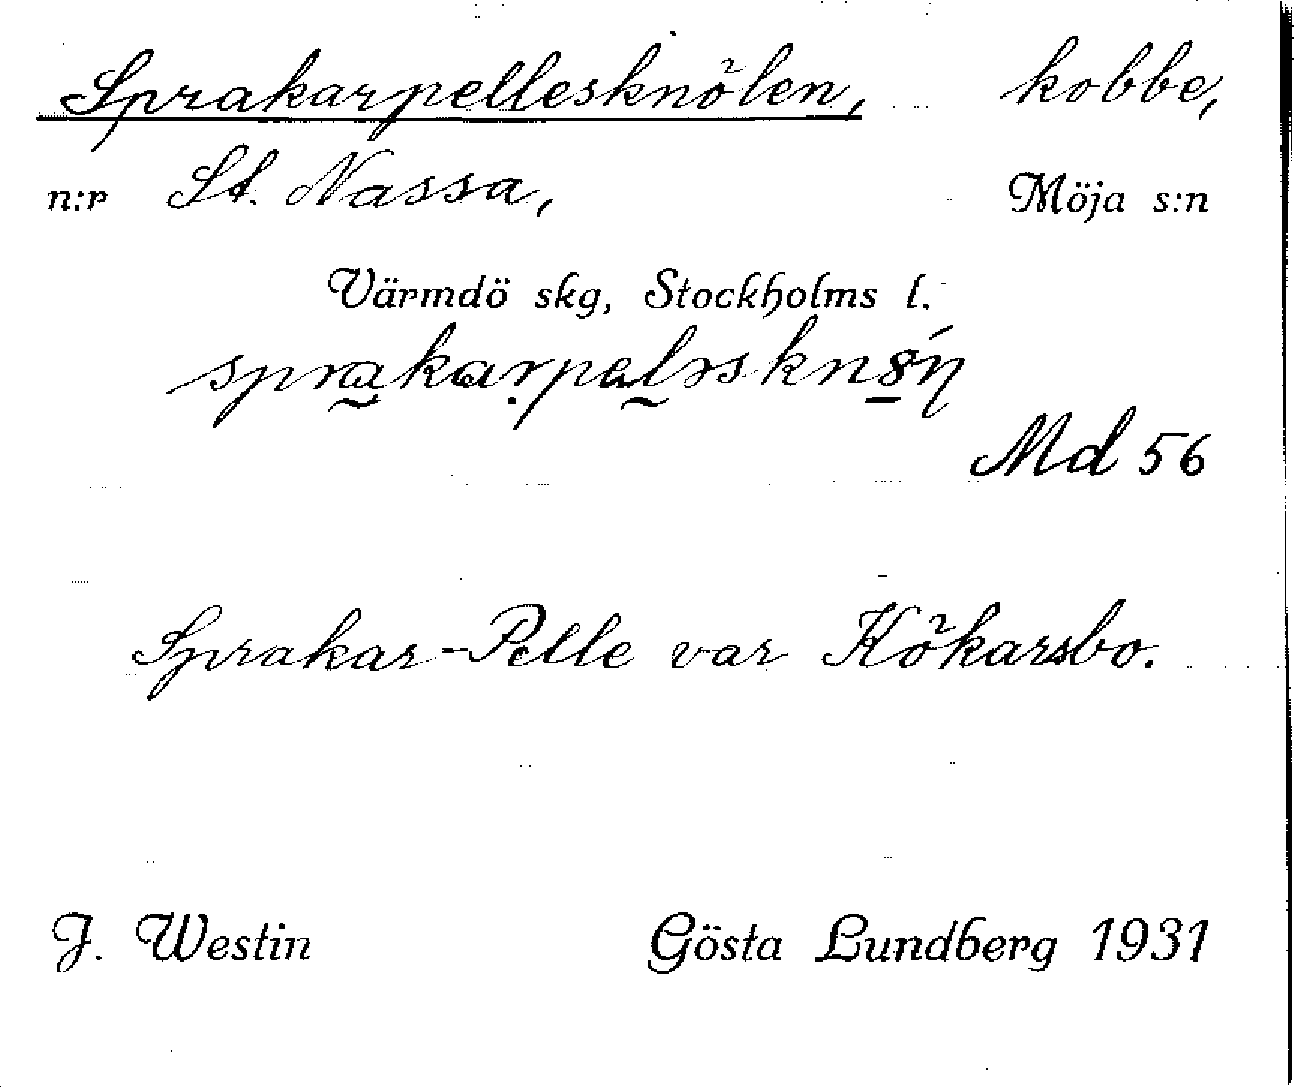 Sprakarpellesknölen, kobbe,
n:r St. Nassa, Möja s:n
Värmdö skg, Stockholms l.
Md 56
Sprakar-Pelle var Kökarsbo.
J. Westin Gösta Lundberg 1931